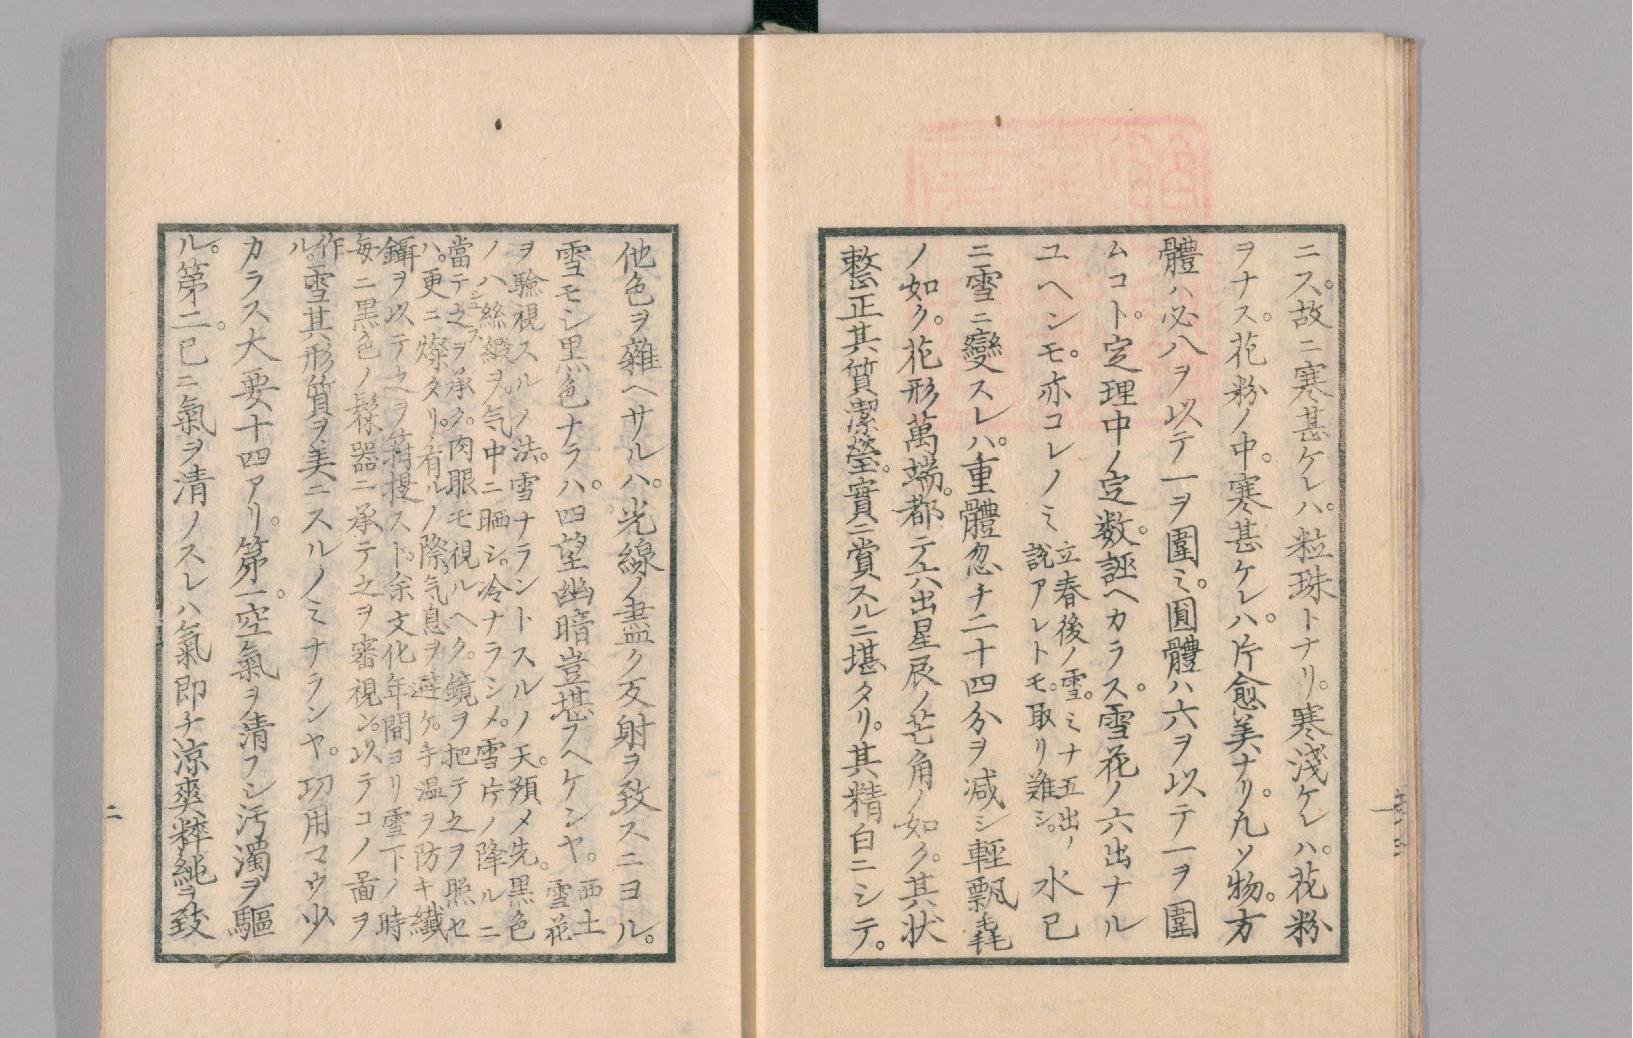 ニス。故ニ寒甚ケレハ。粒珠トナリ。寒淺ケレハ。花粉
ヲナス。花粉ノ中。寒甚ケレハ。片愈美ナリ。凡ソ物。方
體ハ必八ヲ以テ一ヲ圍ミ。圓體ハ六ヲ以テ一ヲ圍
ムコト。定理中ノ定数。誣ヘカラス。雪花ノ六出ナル
ユヘンモ。亦コレノミ
立春後ノ雪。ミナ五出ノ
説アレトモ。取リ難シ。
水已
ニ雪ニ變スレハ。重體忽チ二十四分ヲ减シ輕飄毳
ノ如ク。花形萬端。都テ六出星辰ノ芒角ノ如ク。其状
整正其質潔瑩。實ニ賞スルニ堪タリ。其精白ニシテ。
他色ヲ雜ヘサルハ。光線ノ盡ク反射ヲ致スニヨル。
雪モシ黒色ナラハ。四望幽暗豈堪フヘケンヤ。
西土
雪花
ヲ驗視スルノ法。雪ナラントスルノ天。預メ先。黒色
ノ八絲緞ヲ。気中ニ晒シ。冷ナラシメ。雪片ノ降ルニ
シユス
當テ之ヲ承ク。肉眼モ視ルヘク。鏡ヲ把テ之ヲ照セ
ハ。更ニ燦タリ。看ルノ際。気息ヲ避ケ。手温ヲ防キ纎
鑷ヲ以テ之ヲ箝提スト。余文化年間ヨリ雪下ノ時
毎ニ黒色ノ髹器ニ承テ之ヲ審視シ。以テコノ啚ヲ
作
ル。
雪其形質ヲ美ニスルノミナランヤ。功用マウ少
カラス大要十四アリ。第一。空氣ヲ清フシ汚濁ヲ驅
ル。第二。已ニ氣ヲ清ノスレハ氣即チ涼爽粹純ヲ致
二